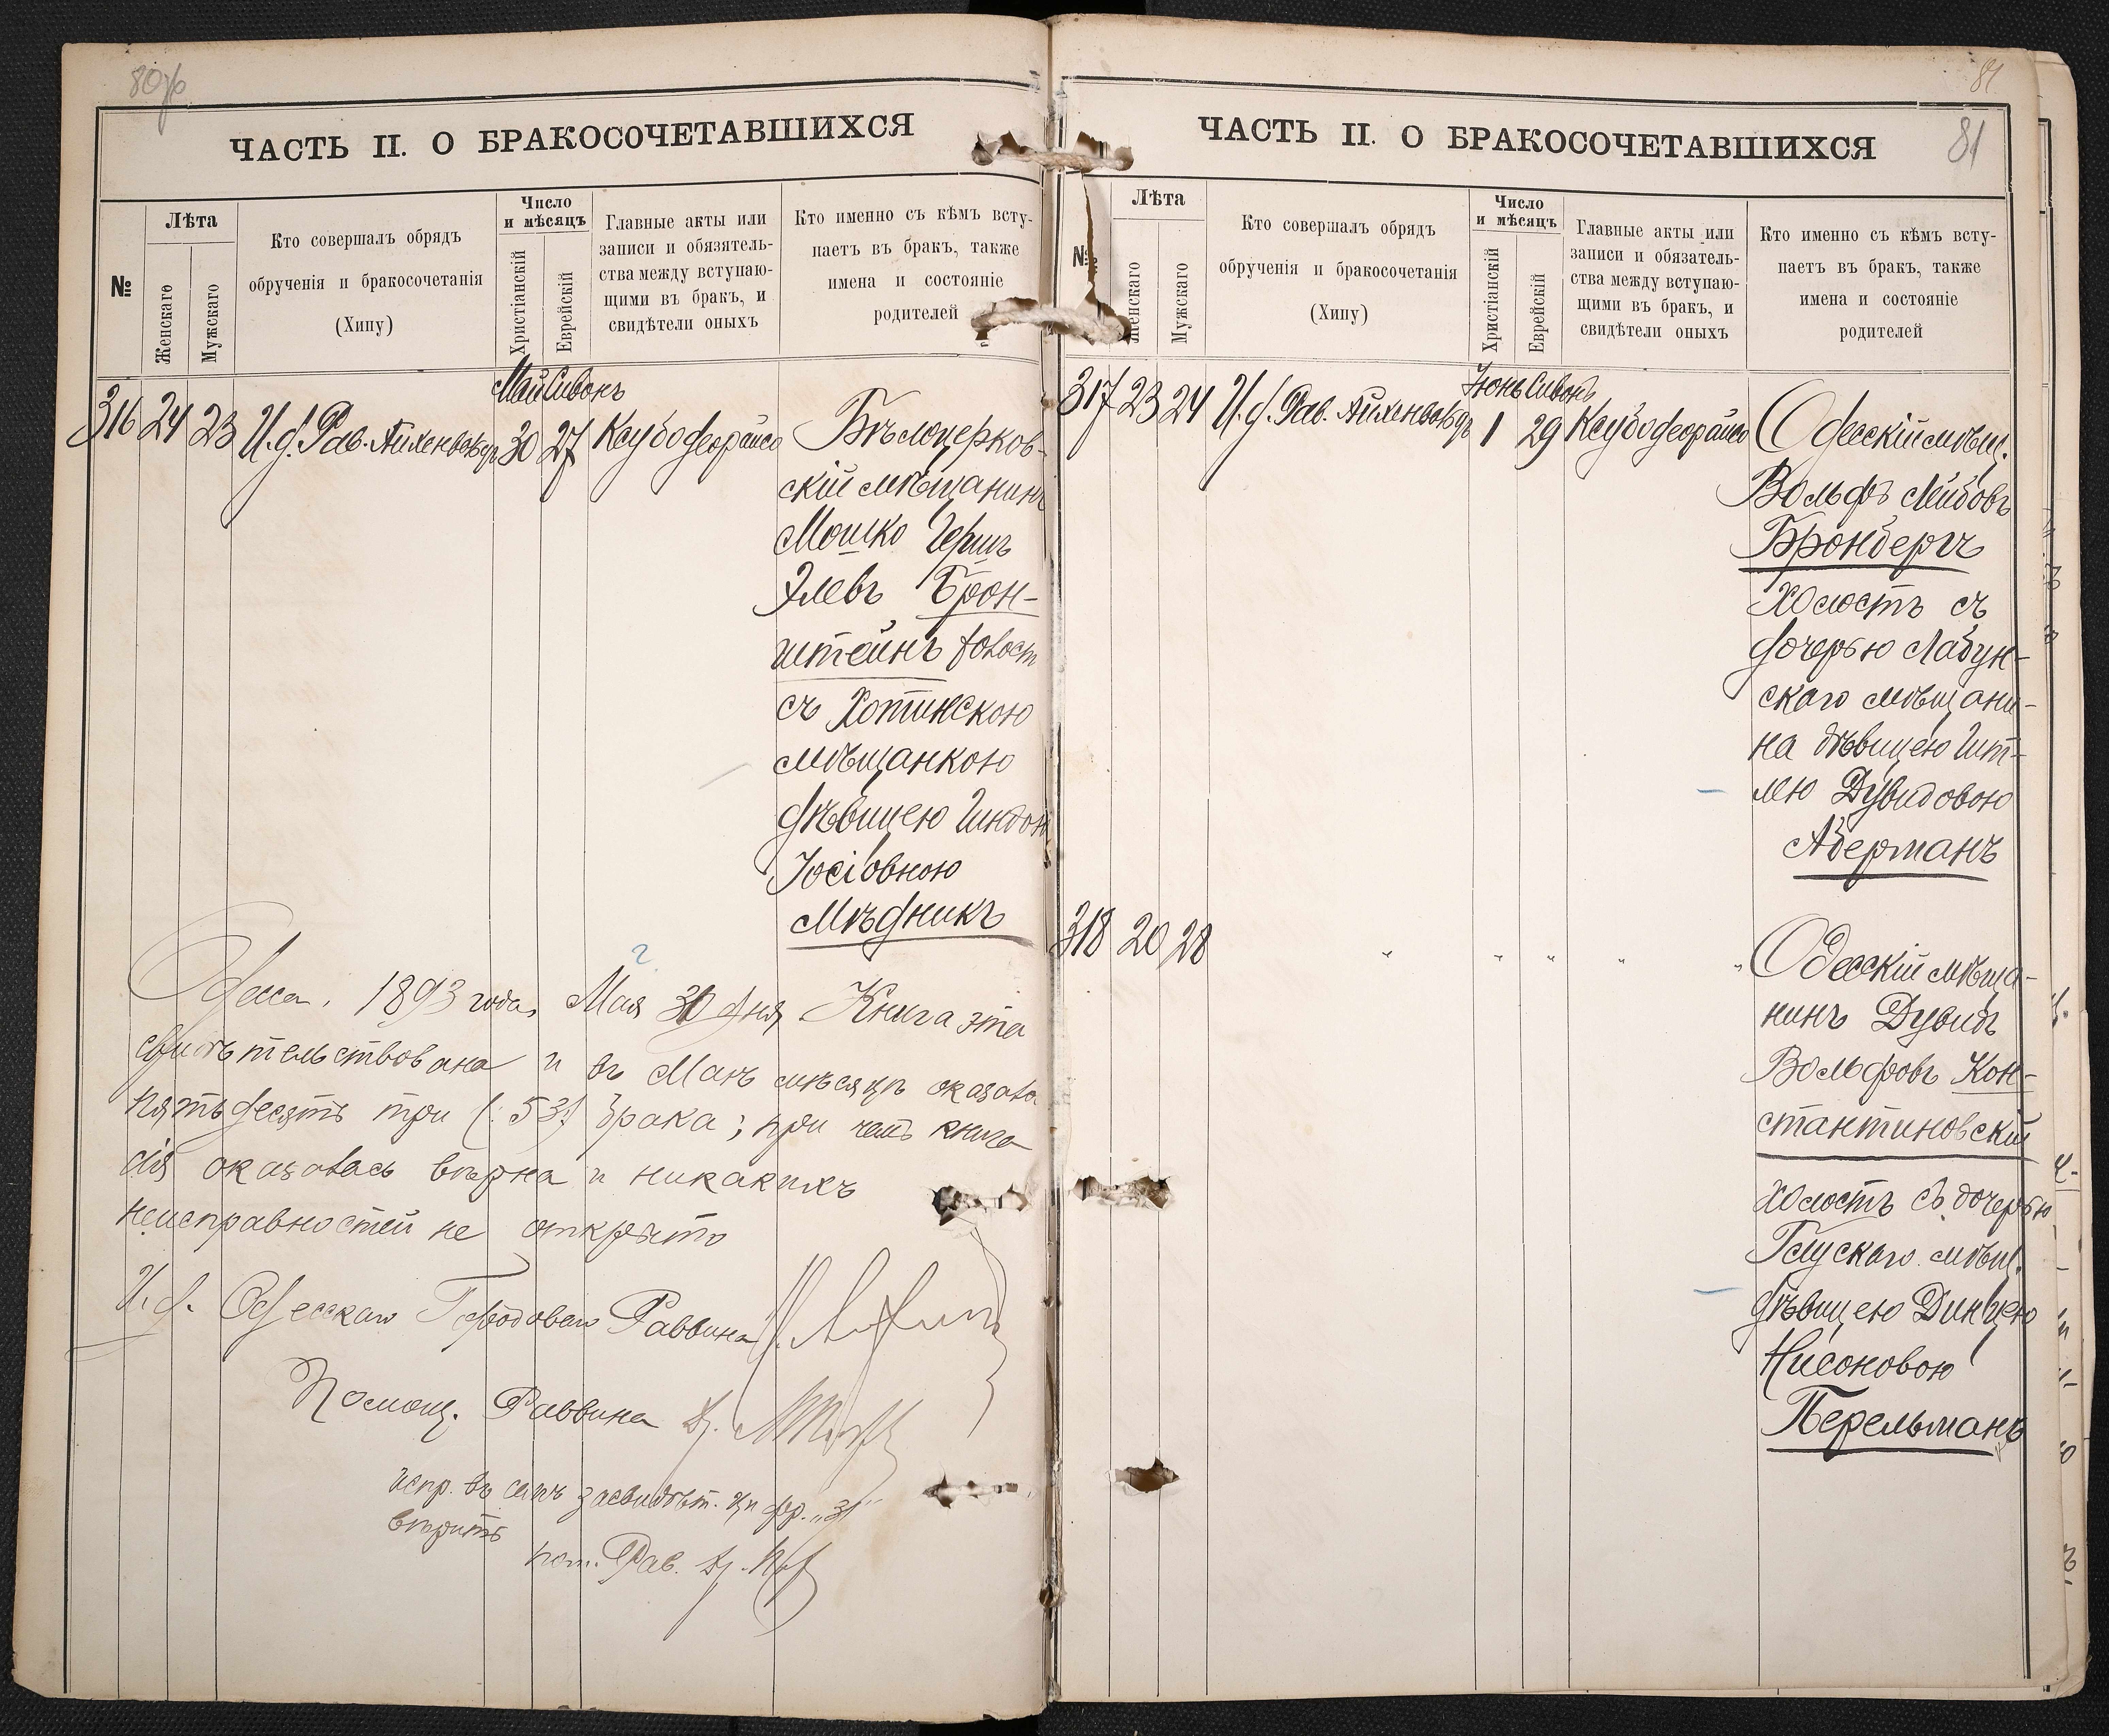 80об
ЧАСТЬ II. О БРАКОСОЧЕТАВШИХСЯ
№
Лѣта
Женскаго
Мужскаго
Кто совершалъ обрядъ
обрученія и бракосочетанія
(Хипу)
Число
и мѣсяцъ
Христіанскій
Еврейскій
Главные акты или
записи и обязатель-
ства между вступаю-
щими въ бракъ, и
свидѣтели оныхъ
Кто именно съ кѣмъ всту-
паетъ въ бракъ, также
имена и состояніе
родителей
Май Сивонъ
316 24 23 И.д. Рав. Айхенвальдъ 30 27 Ксубо деорайсо Бѣлоцерков-
скій мѣщанинъ
Мошко Герш
Элевъ Брон-
штейнъ холост
съ Хотинскою
мѣщанкою
дѣвицею Гиндою
Іосіовною
Мѣдникъ
Одесса, 1893 года, Мая 31 дня Книга эта
свидѣтельствована и въ Маѣ мѣсяцѣ оказало
пятьдесятъ три (:53:) брака; при чемъ книга
сія оказалась вѣрна и никакихъ
неисправностей не открыто
И. д. Одесскаго Городоваго Раввина
Помощ. Раввина
Испр. въ семъ засвидѣт. цифр. „31"
вѣрить
пом. Рав.
81
ЧАСТЬ II. О БРАКОСОЧЕТАВШИХСЯ
81
№
Лѣта
Женскаго
Мужскаго
Кто совершалъ обрядъ
обрученія и бракосочетанія
(Хипу)
Число
и мѣсяцъ
Христіанскій
Еврейскій
Главные акты или
записи и обязатель-
ства между вступаю-
щими въ бракъ, и
свидѣтели оныхъ
Кто именно съ кѣмъ всту-
паетъ въ бракъ, также
имена и состояніе
родителей
Іюнь Сивонъ
317 23 24 И.д. Рав. Айхенвальдъ 1 29 Ксубо деорайсо Одесскій мѣщ.
Вольфъ Лейбовъ
Бронбергъ
Холостъ съ
дочерью Лабун-
скаго мѣщани-
на дѣвицею Ит-
лею Дувидовою
Аберманъ
318 20 28 " " " " " Одесскій мѣща-
нинъ Дувидъ
Вольфовъ Кон-
стантиновскій
холостъ съ дочерью
Глускаго мѣщ.
дѣвицею Динцею
Нисоновою
Перельманъ